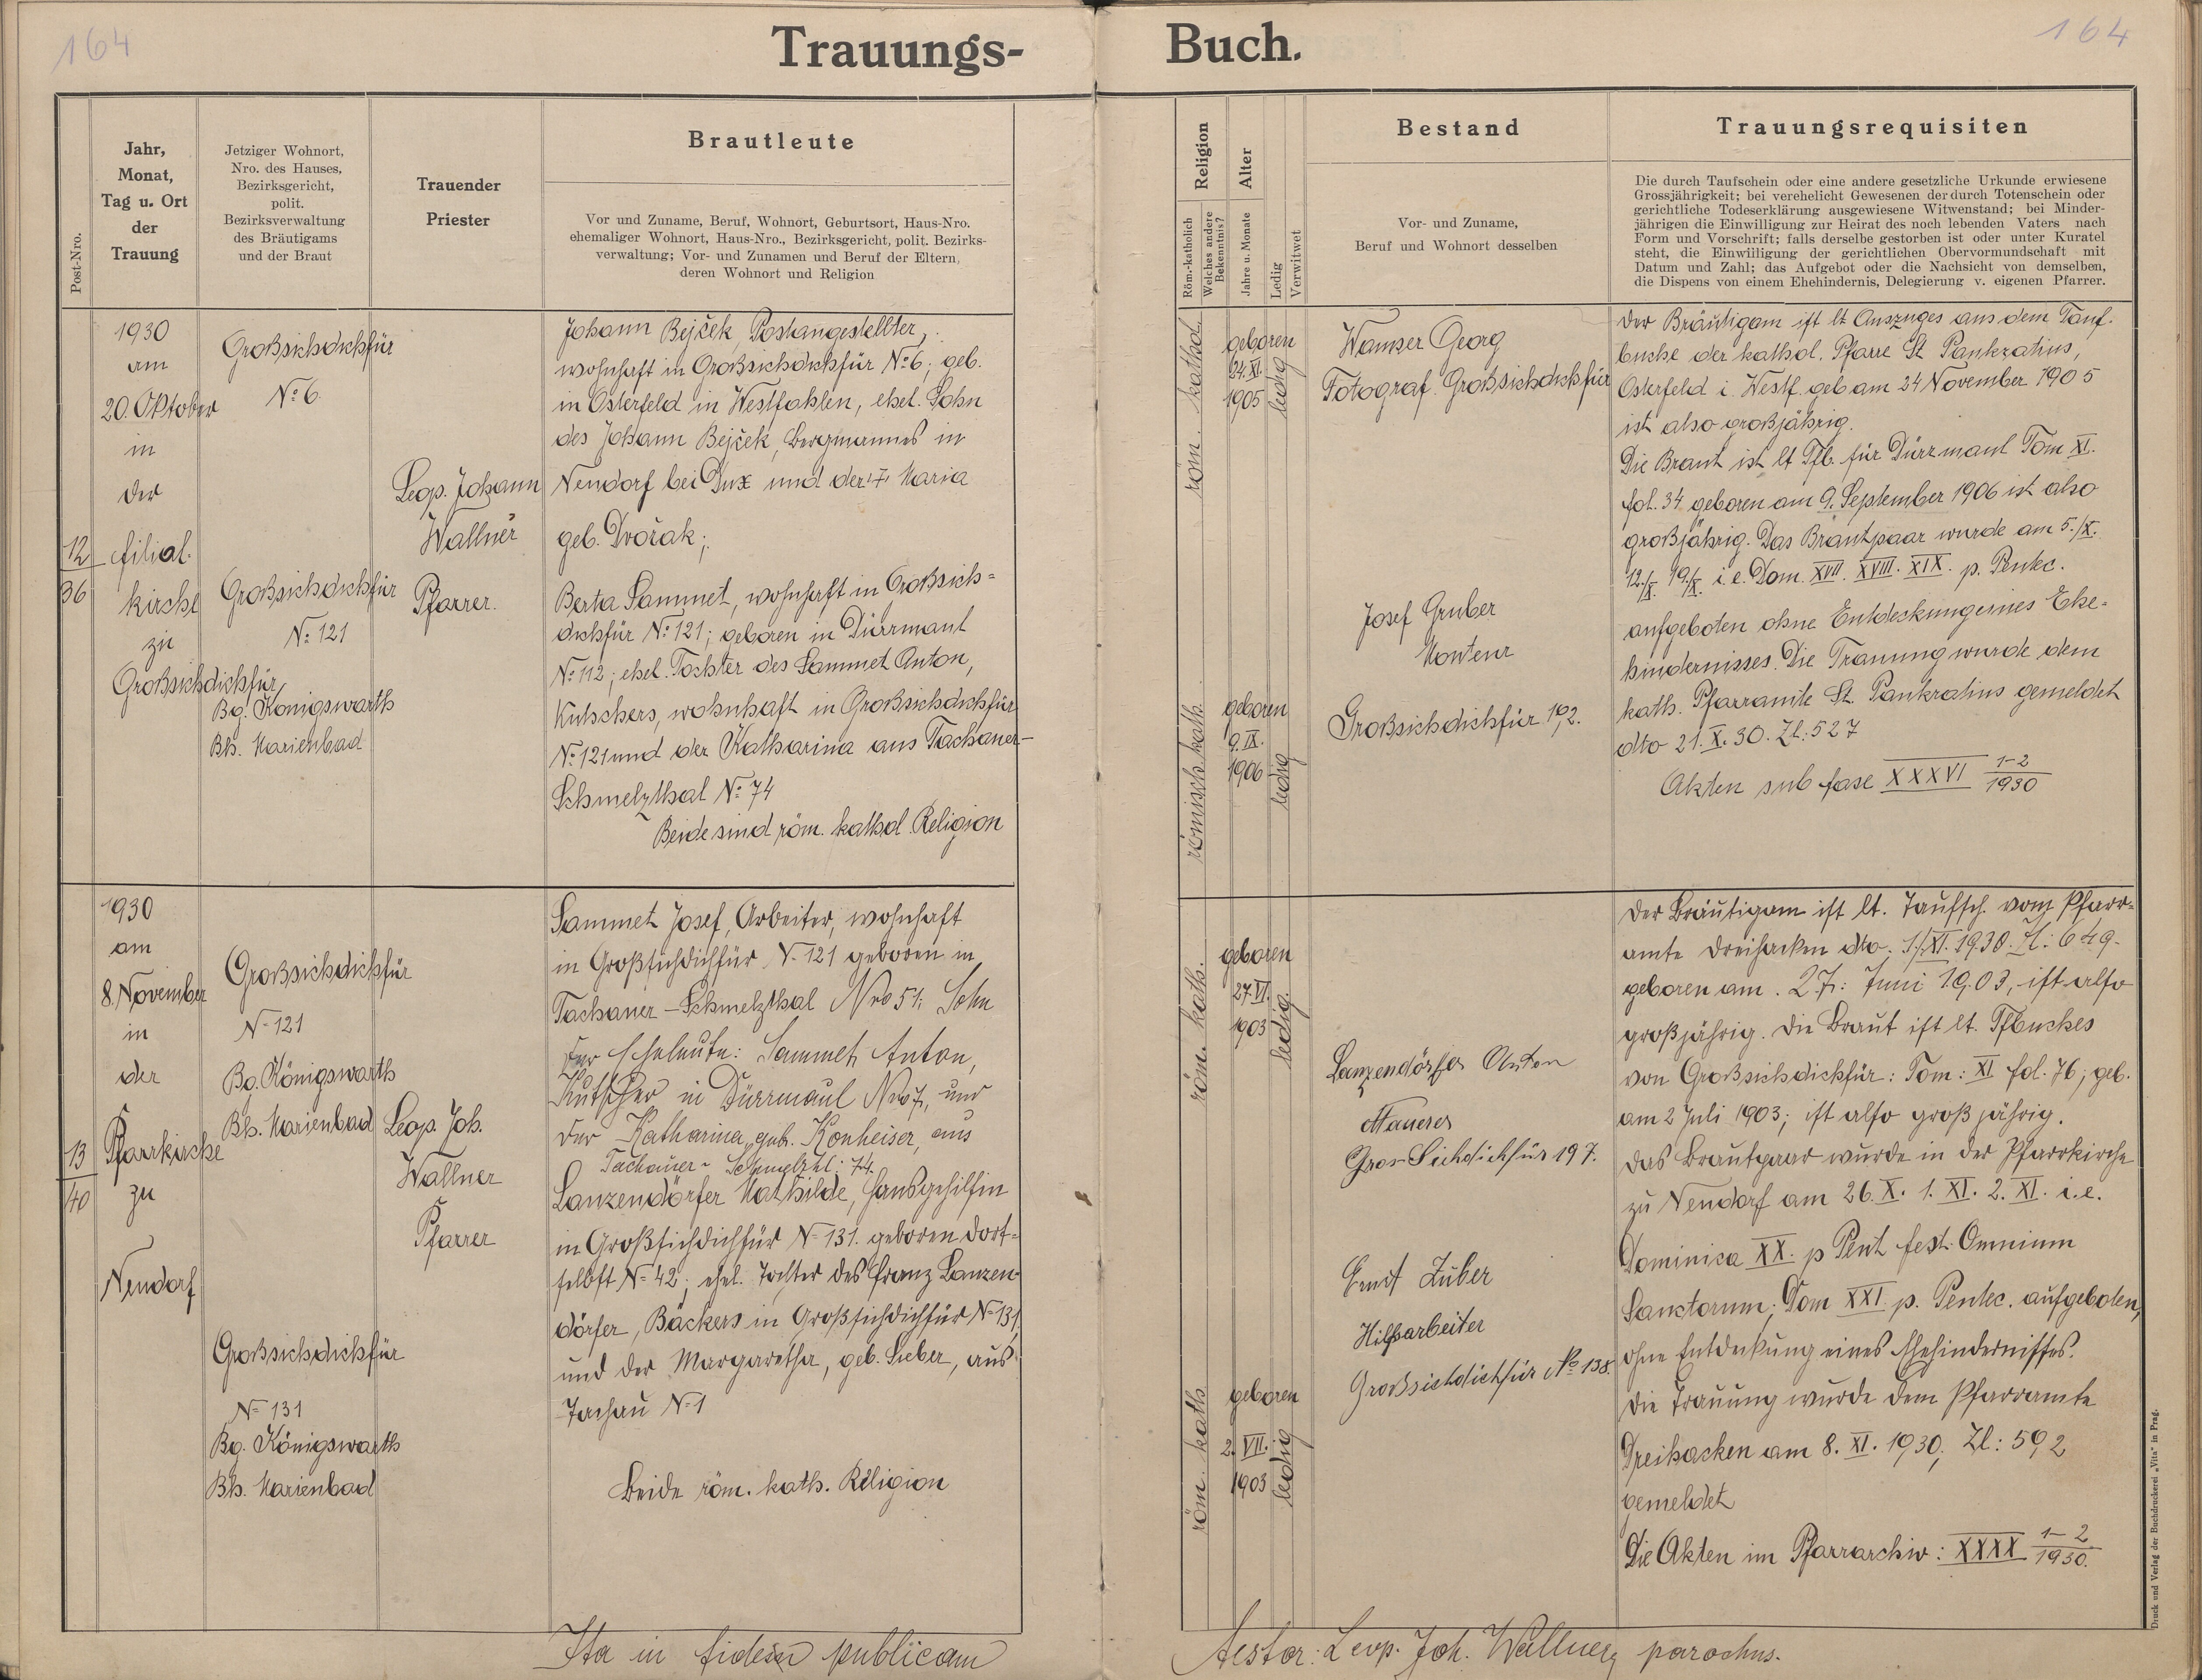 164
164
Trauungs-
Buch.
Post-Nro.
Jahr,
Monat,
Tag u. Ort
der
Trauung
Jetziger Wohnort,
Nro. des Hauses,
Bezirksgericht,
polit.
Bezirksverwaltung
des Bräutigams
und der Braut
Trauender
Priester
Brautleute
Vor und Zuname, Beruf, Wohnort, Geburtsort, Haus-Nro.
ehemaliger Wohnort, Haus-Nro., Bezirksgericht, polit. Bezirks-
verwaltung; Vor- und Zunamen und Beruf der Eltern,
deren Wohnort und Religion
Religion
Röm.-katholisch
Welches andere
Bekenntnis?
Alter
Jahre u. Monate
Ledig
Verwitwet
Bestand
Vor- und Zuname,
Beruf und Wohnort desselben
Trauungsrequisiten
Die durch Taufschein oder eine andere gesetzliche Urkunde erwiesene
Grossjährigkeit; bei verehelicht Gewesenen der durch Totenschein oder
gerichtliche Todeserklärung ausgewiesene Witwenstand; bei Minder-
jährigen die Einwilligung zur Heirat des noch lebenden Vaters nach
Form und Vorschrift; falls derselbe gestorben ist oder unter Kuratel
steht, die Einwilligung der gerichtlichen Obervormundschaft mit
Datum und Zahl; das Aufgebot oder die Nachsicht von demselben,
die Dispens von einem Ehehindernis, Delegierung v. eigenen Pfarrer.
12
36
1930
am
20. Oktober
in
der
filial.
kirche
zu
Großsichdichfür
Großsichdichfür
Nº 6
Großsichdichfür
Nº 121
Bg. Königswarth
Bh. Marienbad
Leop. Johann
Wallner
Pfarrer.
Johann Bejček, Postangestellter,
wohnhaft in Großsichdichfür Nº 6; geb.
in Osterfeld in Westfahlen, ehel. Sohn
des Johann Bejček, Bergmannes in
Neudorf bei Dux und der † Maria
geb. Dvořak;
Berta Sammet, wohnhaft in Großsich=
dichfür Nº 121; geboren in Dürrmaul
Nº 112; ehel. Tochter des Sammet Anton,
Kutschers, wohnhaft in Großsichdichfür
Nº 121 und der Katharina aus Tachauer-
Schmelzthal Nº 74
Beide sind röm. kathol. Religion
röm. kathol.
geboren
24. XI.
1905
ledig
römisch kath.
geboren
9. IX.
1906
ledig
Wamser Georg
Fotograf Großsichdichfür
Josef Gruber
Monteur
Großsichdichfür 192.
Der Bräutigam ist lt Auszuges aus dem Tauf-
buche der kathol. Pfarre St Pankratius,
Osterfeld i. Westf. geb am 24 November 1905
ist also großjährig.
Die Braut ist lt Tfb. für Dürrmaul Tom XI.
fol. 34 geboren am 9. September 1906 ist also
großjährig. Das Brautpaar wurde am 5./X.
12./X. 19./X. i. e. Dom. XVII. XVIII. XIX. p. Pentec.
aufgeboten ohne Entdeckung eines Ehe-
hindernisses. Die Trauung wurde dem
kath. Pfarramte St. Pankratius gemeldet
dto 21. X. 30. Zl: 527
Akten sub fasc XXXVI 1-2/1930
13
40
1930
am
8. November
in
der
Pfarrkirche
zu
Neudorf
Großsichdichfür
N= 121
Bg. Königswarth
Bh. Marienbad
Großsichdichfür
N= 131
Bg. Königswarth
Bh. Marienbad
Leop. Joh.
Wallner
Pfarrer
Sammet Josef, Arbeiter, wohnhaft
in Großsichdichfür N= 121 geboren in
Tachauer-Schmelzthal Nro 51; Sohn
der Eheleute: Sammet Anton,
Kutscher in Dürrmaul Nro 7, und
der Katharina, geb. Konheiser, aus
Tachauer-Schmelzthl: 74.
Lanzendörfer Mathilde, Hausgehilfin
in Großsichdichfür N= 131. geboren dort=
selbst N= 42; ehel. Tochter des Franz Lanzen-
dörfer, Bäckers in Großsichdichfür N= 131
und der Margaretha, geb. Sieber, aus
Tachau N= 1
Beide röm. kath. Religion
röm. kath.
geboren
27. VI.
1903
ledig
röm. kath
geboren
2. VII.
1903
ledig
Lanzendörfer Anton
Maurer
Gros-Sichdichfür 197.
Ernst Zuber
Hilfsarbeiter
Großsichdichfür Nº 138.
Der Bräutigam ist lt. Taufsch. vom Pfarr-
amte Dreihacken dto. 1./XI. 1930. Zl: 649-
geboren am 27: Juni 1903, ist also
großjährig. Die Braut ist lt. Tfbuches
von Großsichdichfür: Tom: XI fol. 76; geb.
am 2 Juli 1903; ist also großjährig.
Das Brautpaar wurde in der Pfarrkirche
zu Neudorf am 26. X. 1. XI. 2. XI. i. e.
Dominica XX. p Pent fest. Omnium
Sanctorum; Dom XXI p. Pentec. aufgeboten,
ohne Entdeckung eines Ehehindernisses.
Die Trauung wurde dem Pfarramte
Dreihacken am 8. XI. 1930, Zl: 592
gemeldet
Die Akten im Pfarrarchiv: XXXX 1-2/1930.
Ita in fidem publicam
testor: Leop. Joh. Wallner, parochus.
Druck und Verlag der Buchdruckerei „Vita" in Prag.